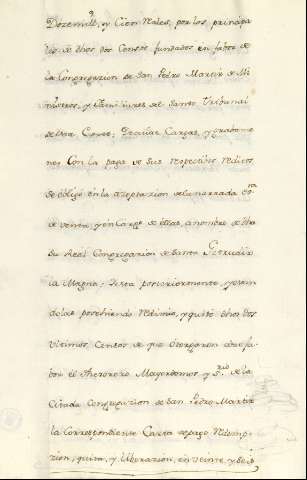 Doze mill, y Cien Reales, por los principa
les de dhos dos Censos fundados en fabor de
la Congregazion de San Pedro Martir de Mi
nistros, y Familiares del Santo Tribunal
de esta Corte; Cargas, y grabame
nes Con la paga de sus respectibos Reditos
se obligó en la azeptazion de la narrada
de venta, y en Carga de ellas, a nombre de dha
su Real Congregazion de Santa Gertrudis
la Magna; Y esta posteriormente, y estan
dolas posehiendo Redimio, y quitó dhos dos
ultimos Censos de que otorgaron a su fa
bor el Thesorero Mayordomo, y de la
Citada Congregazion de San Pedro Martir
la Correspondiente Carta de pago Redemp
zion, quita, y liberazion, en veinte y seis